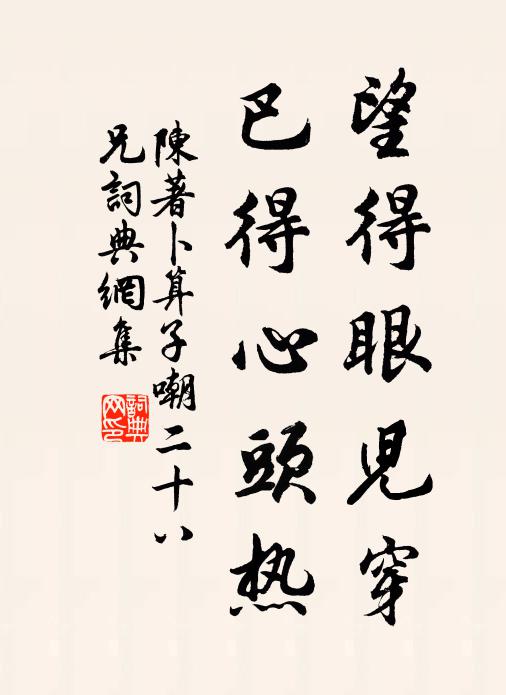 望得眼児穿
巴得心頭热
陳著卜算子嘲二十八
兄詞典網集
詞典网印